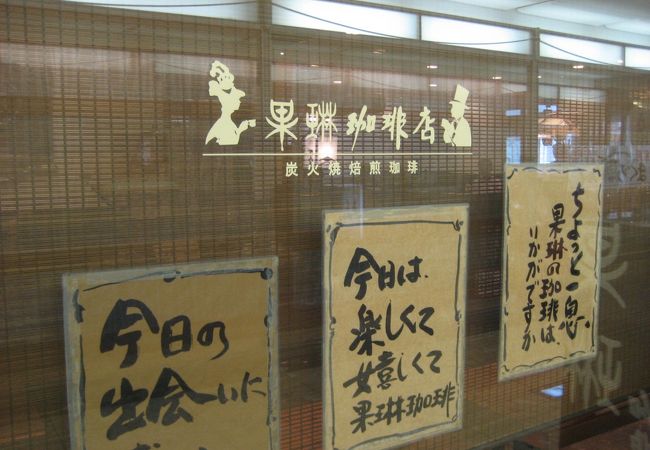 果琳珈琲店
炭火焼焙煎珈琲
ちょっと一息、
果琳の珈琲は、
いかがですか
今日は、
楽しくて
嬉しくて
果琳珈琲
今日の
出会いに